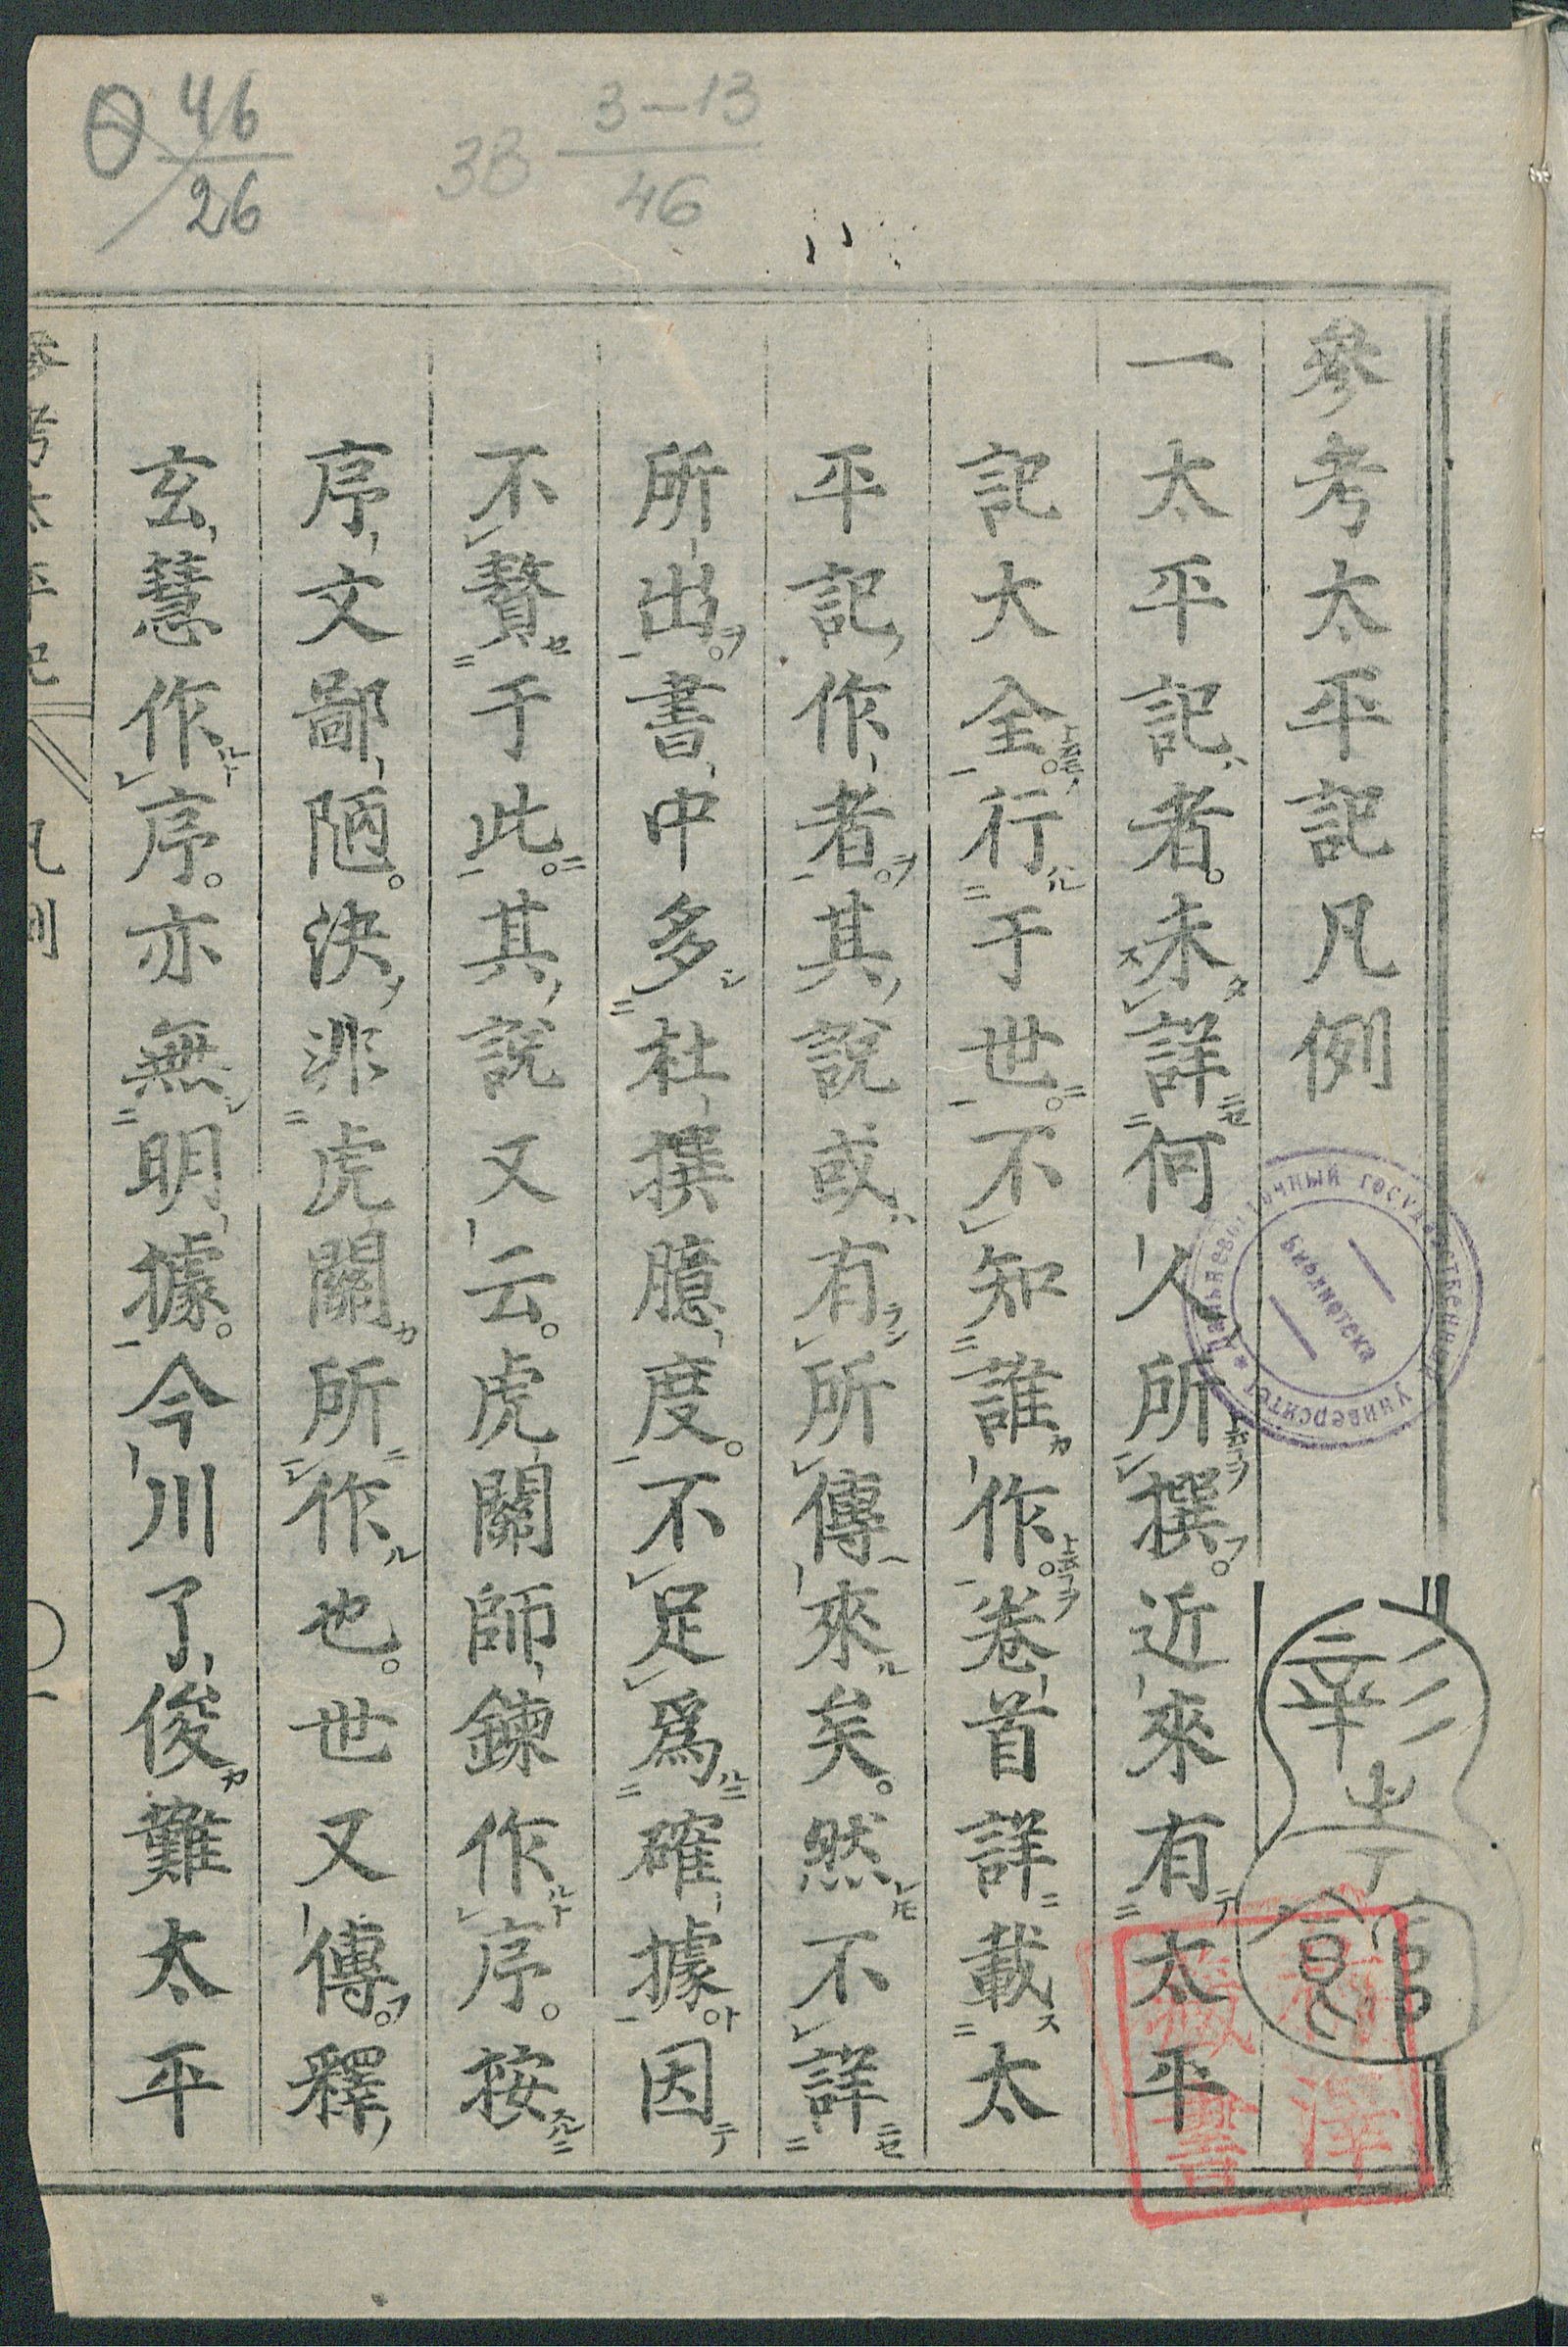 參考太平記凡例
一太平記者。未詳何人所撰。近來有太平
記大全。行于世。不知誰作。卷首詳載太
平記作者。其說或有所傳來矣。然不詳
所出。書中多杜撰臆度。不足爲確據。因
不贅于此。其說又云。虎關師鍊作序。按
序文鄙陋。決非虎關所作也。世又傳。釋
玄慧作序。亦無明據。今川了俊難太平
參考太平記 凡例 〇一
彰考館
藏書
46
26
38 3-13
46
Дальневосточный государственный университет
Библиотека